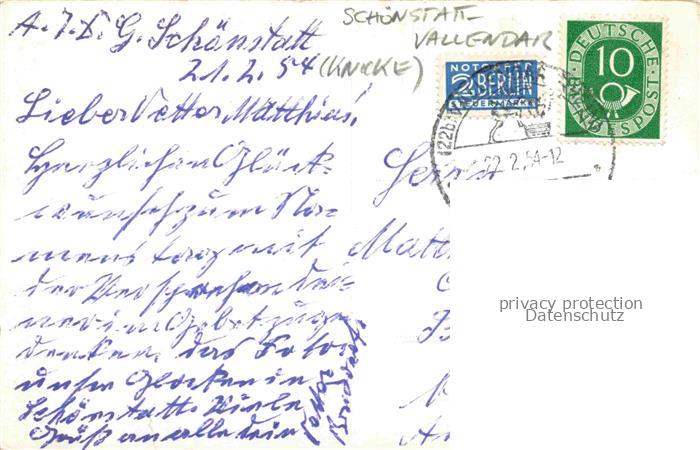 A.I.D.G. Schönstatt
21.2.54 (KNICKE)
SCHÖNSTATT-
VALLENDAR
NOTOPFER
2 BERLIN
STEUERMARKE
DEUTSCHE BUNDESPOST
10
22.2.54-12
Lieber Vetter Matthias!
Herzlichen Glück-
wunsch zum Na-
menstage mit
der Versprechen dei-
ner im Gebet zu ge-
denken. das Foto
unsre Glocken in
Schönstatt. Viele
Grüße an alle dein
Herrn
Matt
privacy protection
Datenschutz